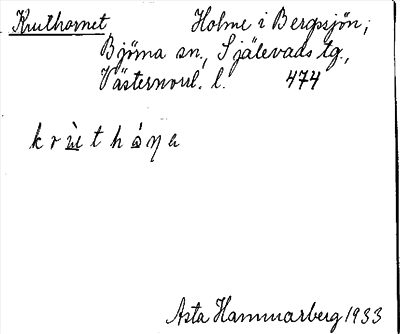 Kruthornet, Holme i Bergsjön;
Björna sn., Själevads tg.,
Västernorrl. l. 474
k r ù t h ó ŋ a
Asta Hammarberg 1933